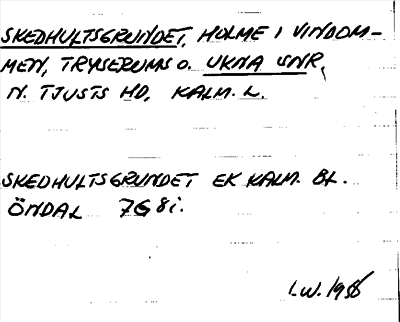 SKEDHULTSGRUNDET, HOLME I VINDOM-
MEN, TRYSERUMS O. UKNA SNR,
N. TJUSTS HD, KALM. L.
SKEDHULTSGRUNDET EK KALM. BL.
ÖNDAL 7G8i.
I.W. 1956